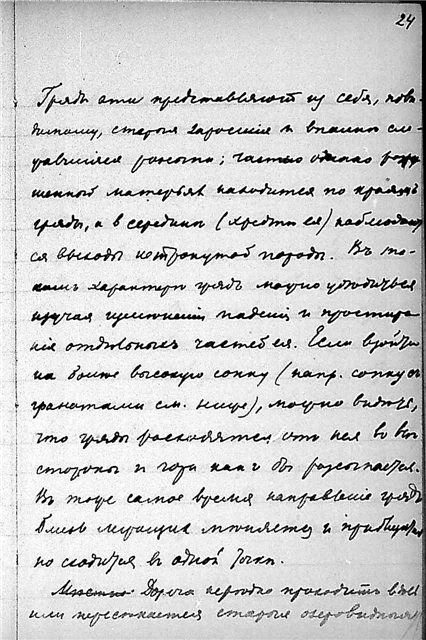 24
Гряды эти представляютъ из себя, пови-
димому, старыя заросшия и вполне сле-
жавшияся россыпи; частью однако разру-
шенный матерьял находится по краямъ
гряды, а в середины (хребты ея) наблюдают
ся выходы нетронутой породы. Въ та-
комъ характере грядъ можно убедиться
изучая изменения падения и простира-
ния отдельныхъ частей ея. Если взойти
на более высокую сопку (напр. сопку съ
гранатами см. ниже), можно видеть,
что гряды расходятся отъ нея во все
стороны и гора какъ бы рассыпается.
Въ тоже самое время направление грядъ
близь лежащихъ меняется и
но сходится в одной точке.
Местно Дорога нередко проходитъ
или пересекается старые озеровидныя